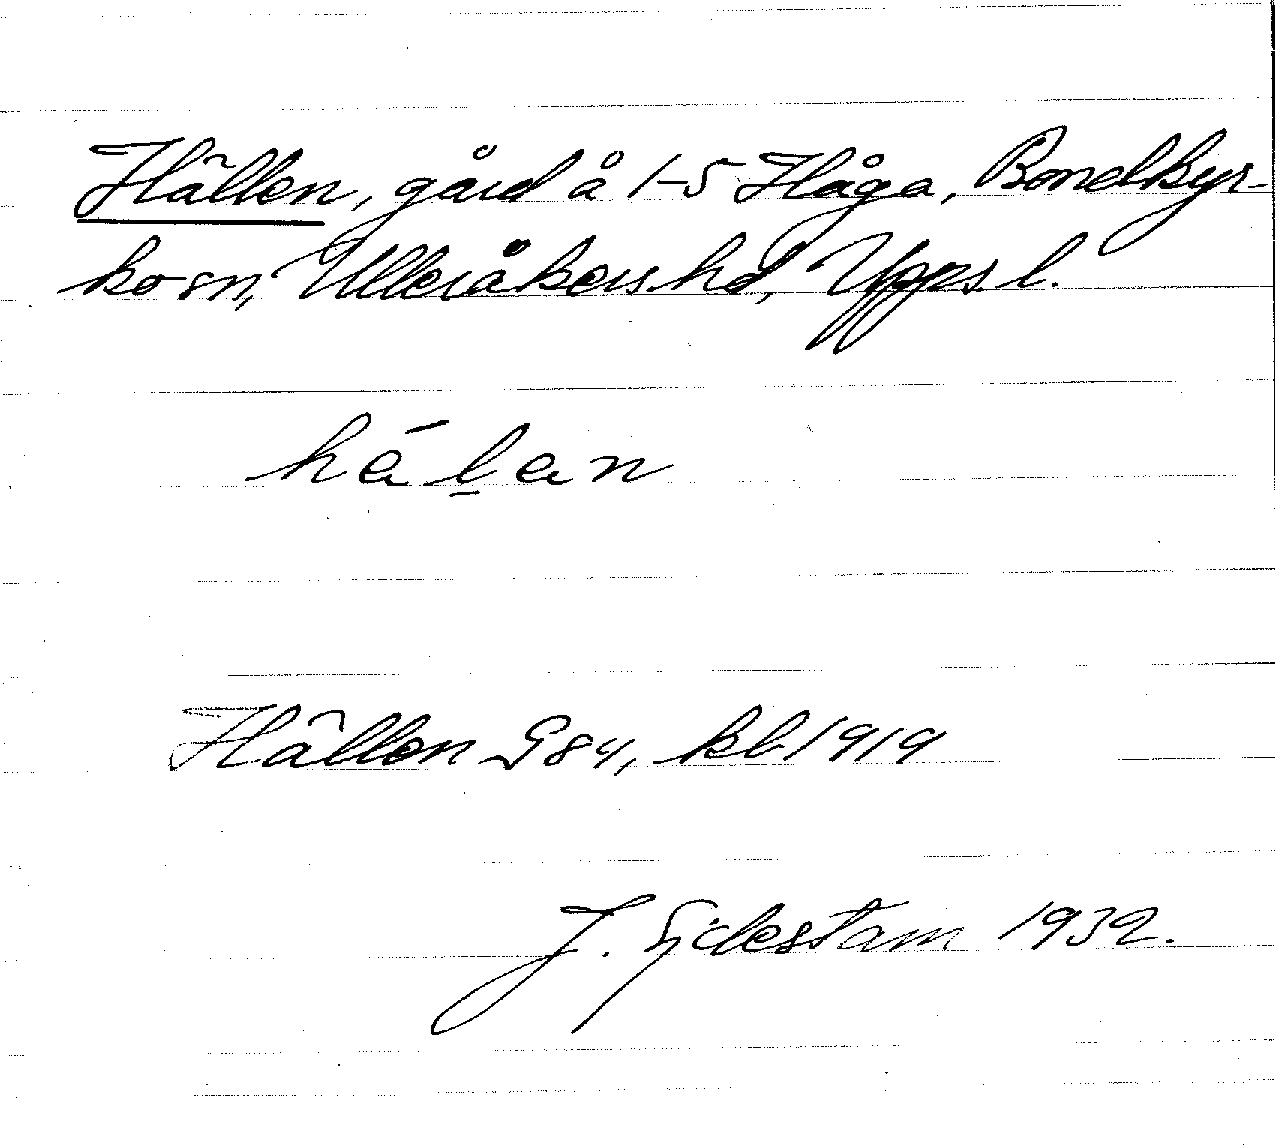 Hällen, gård å 1-5 Håga, Bondkyr-
ko sn, Ulleråkers hd, Upps. l.
Hällen G84, kbl 1919
J. 1932.